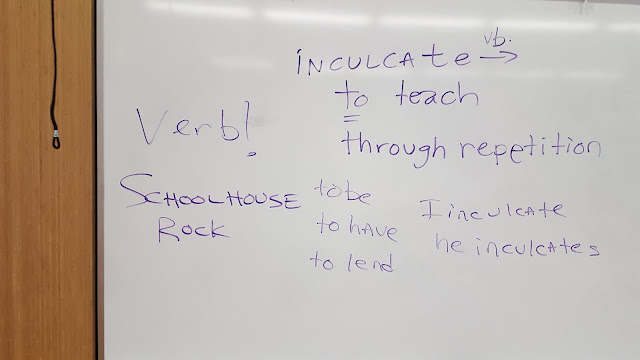 INCULCAte vb. →
to teach
through repetition
Verb!
SCHOOLHOUSE
ROCK
to be
to hAve
to lend
I inculcate
he inculcAtes